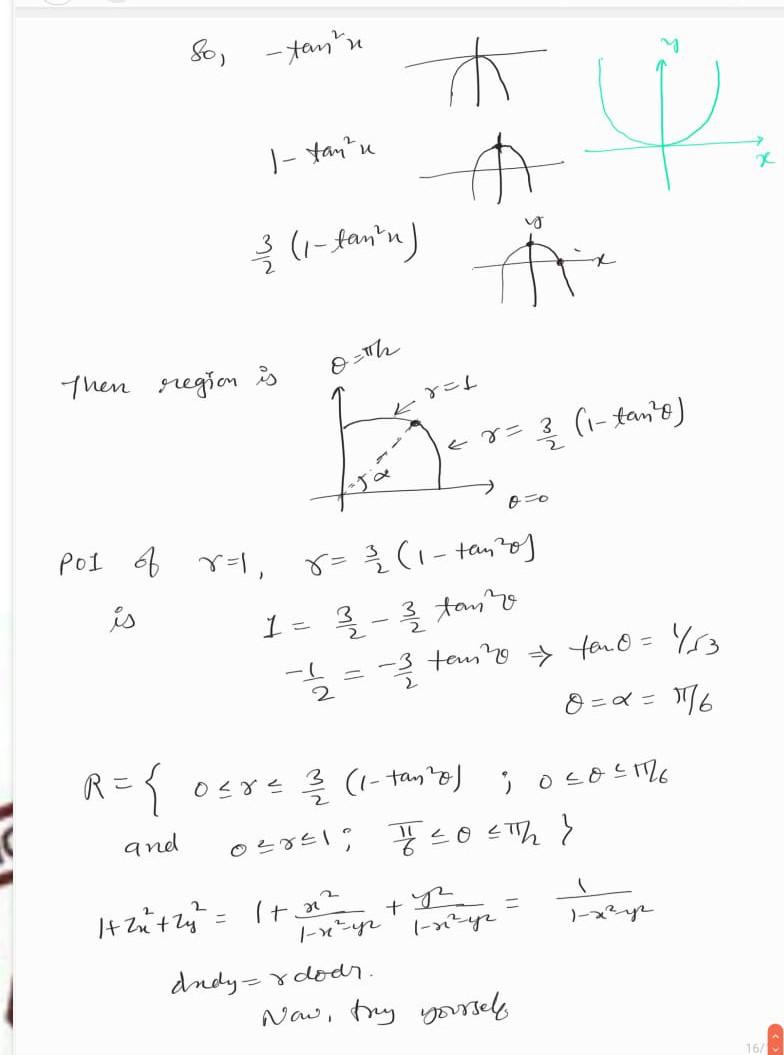 So, -tan²x
y
x
1 - tan²x
3/2 (1 - tan²x)
y
x
Then region is
θ = π/2
r = 1
r = 3/2 (1 - tan²θ)
α
θ = 0
POI of r = 1, r = 3/2 (1 - tan²θ)
is 1 = 3/2 - 3/2 tan²θ
-1/2 = -3/2 tan²θ ⇒ tanθ = 1/√3
θ = α = π/6
R = { 0 ≤ r ≤ 3/2 (1 - tan²θ) ; 0 ≤ θ ≤ π/6
and 0 ≤ r ≤ 1 ; π/6 ≤ θ ≤ π/2 }
1 + Zx² + Zy² = 1 + x²/1-x²-y² + y²/1-x²-y² = 1/1-x²-y²
dxdy = r dθdr.
Now, try yourself
16/